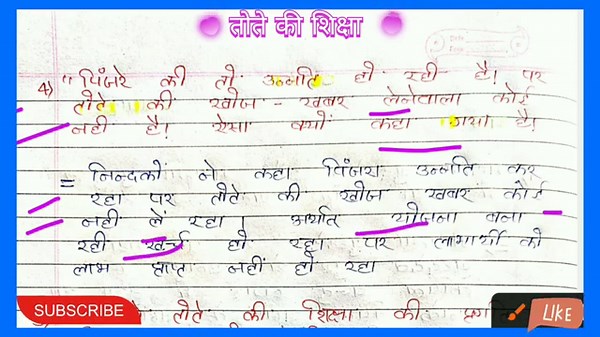 तोते की शिक्षा
4) "पिंजरे की तो उन्नति हो रही है! पर
तोते की खोज - खबर लेनेवाला कोई
नही है! ऐसा क्यों कहा गया है!
= निन्दकों ने कहा पिंजरा उन्नति कर
रहा पर तोते की खोज खबर कोई
नही लें रहा। अर्थात योजना बना
रही खर्च हो रहा पर लाभार्थी को
लाभ प्राप्त नहीं हो रहा
SUBSCRIBE
LIKE
तोते की शिक्षा की